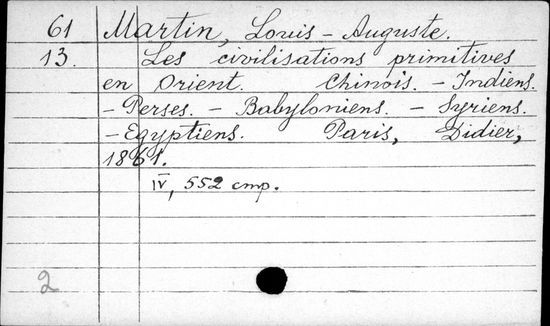 61 Martin, Louis - Auguste.
13. Les civilisations primitives
en Orient. Chinois. - Indiens.
- Perses. - Babyloniens. - Syriens.
- Egyptiens. Paris, Didier,
1861.
IV, 552 стр.
2